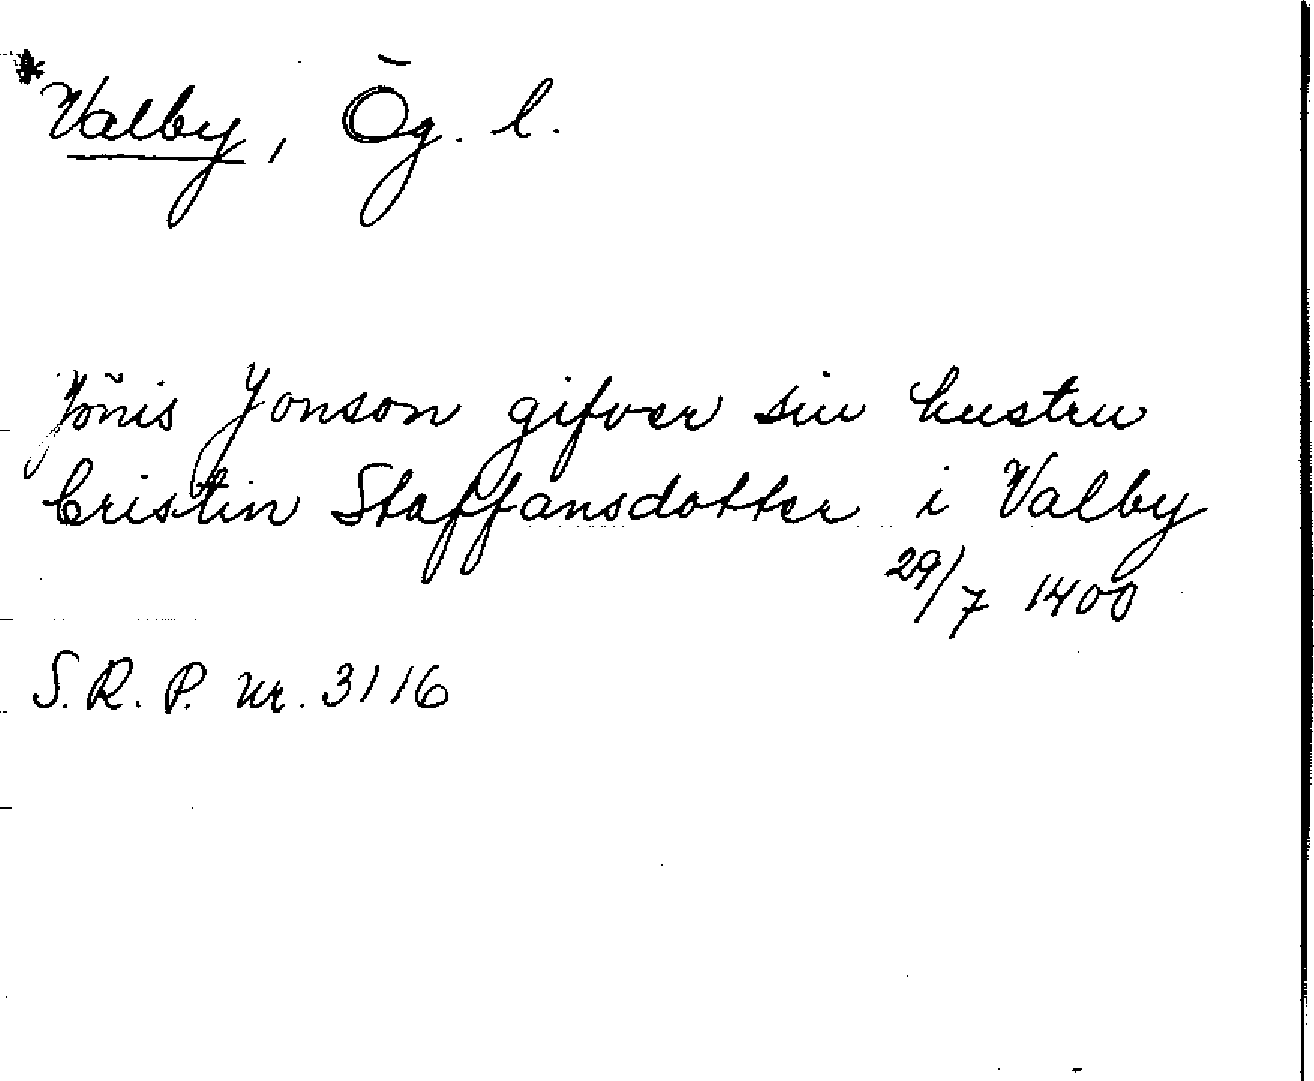 *Valby, Ög. l.
Jönis Jonson gifver sin hustru
Cristin Staffansdotter i Valby
29/7 1400
S. R. P. nr. 3116